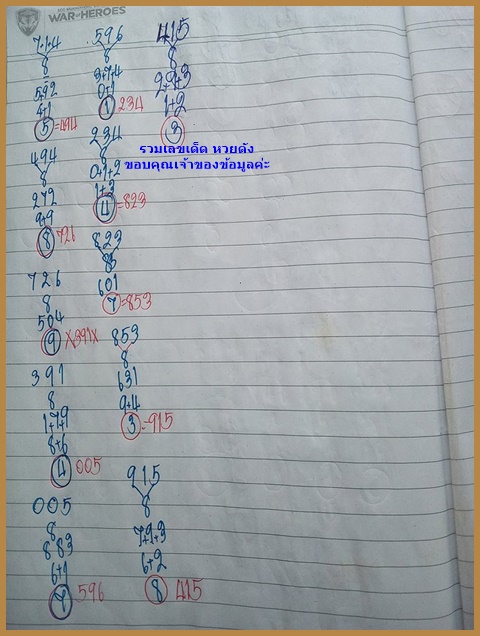 WAR HEROES
714
8
592
4+1
5 = 494
494
8
272
9+9
8 726
726
8
504
9 X391X
391
8
1+7+9
8+6
4 005
005
8
883
6+1
7 596
596
8
9+7+4
0+1
1 234
234
8
0+1+2
1+3
4 = 823
823
8
601
7 = 853
853
8
631
9+4
3 = 915
915
8
7+9+3
6+2
8 415
415
8
2+9+3
1+2
3
รวมเลขเด็ด หวยดัง
ขอบคุณเจ้าของข้อมูลค่ะ